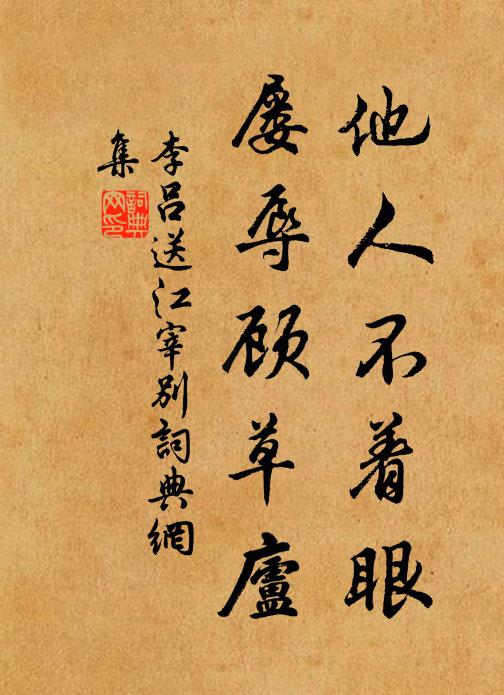 他人不着眼
屡辱顾草廬
李吕送江宰别詞典網
集
詞典
网印